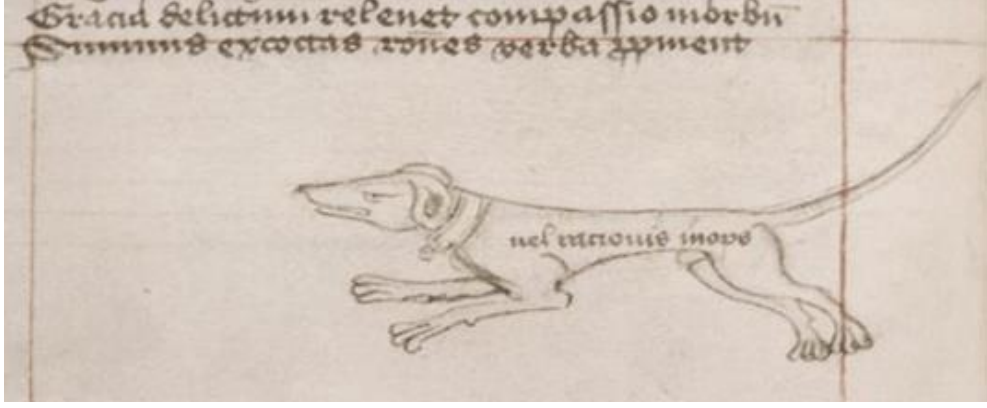 Gracia delictum relevet compassio morbū
Summus excoctas rōnes verba ꝓment
vel racionis inops